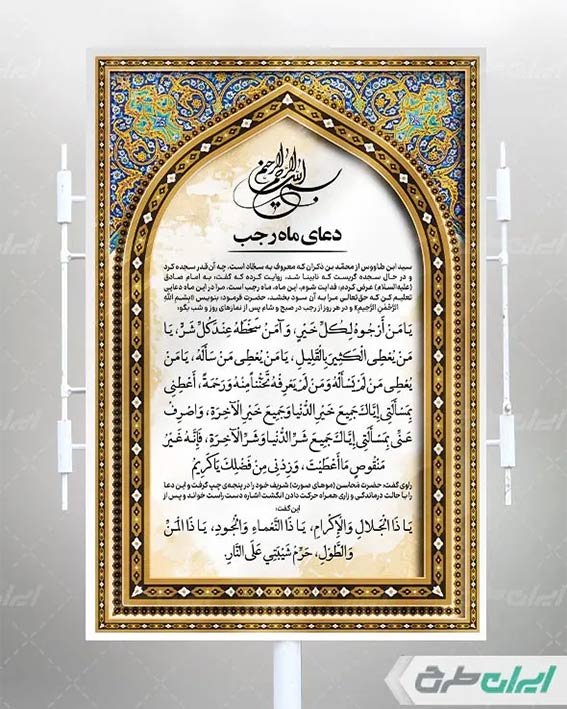 بسم الله الرحمن الرحیم
دعای ماه رجب
سید ابن طاووس از محمّد بن ذکوان که معروف به سجّاد است، چه آن‌قدر سجده کرد
و در حال سجده گریست که نابینا شد، روایت کرده که گفت: به امام صادق
(علیه‌السلام) عرض کردم: فدایت شوم، این ماه، ماه رجب است، مرا در این ماه دعایی
تعلیم کن که حق‌تعالی مرا به آن سود بخشد، حضرت فرمود: بنویس «بِسْمِ اللَّهِ
الرَّحْمنِ الرَّحِیمِ» و در هر روز از رجب در صبح و شام پس از نمازهای روز و شب بگو:
يَا مَنْ أَرْجُوهُ لِكُلِّ خَيْرٍ، وَ آمَنُ سَخَطَهُ عِنْدَ كُلِّ شَرٍّ، يَا
مَنْ يُعْطِي الْكَثِيرَ بِالْقَلِيلِ، يَا مَنْ يُعْطِي مَنْ سَأَلَهُ، يَا مَنْ
يُعْطِي مَنْ لَمْ يَسْأَلْهُ وَ مَنْ لَمْ يَعْرِفْهُ تَحَنُّناً مِنْهُ وَ رَحْمَةً، أَعْطِنِي
بِمَسْأَلَتِي إِيَّاكَ جَمِيعَ خَيْرِ الدُّنْيَا وَ جَمِيعَ خَيْرِ الْآخِرَةِ، وَ اصْرِفْ
عَنِّي بِمَسْأَلَتِي إِيَّاكَ جَمِيعَ شَرِّ الدُّنْيَا وَ شَرِّ الْآخِرَةِ، فَإِنَّهُ غَيْرُ
مَنْقُوصٍ مَا أَعْطَيْتَ، وَ زِدْنِي مِنْ فَضْلِكَ يَا كَرِيمُ
راوی گفت: حضرت مَحاسن (موهای صورت) شریف خود را در پنجه‌ی چپ گرفت و این دعا
را با حالت درماندگی و زاری همراه حرکت دادن انگشت اشاره دست راست خواند و پس از
این گفت:
يَا ذَا الْجَلَالِ وَ الْإِكْرَامِ، يَا ذَا النَّعْمَاءِ وَ الْجُودِ، يَا ذَا الْمَنِّ
وَ الطَّوْلِ، حَرِّمْ شَيْبَتِي عَلَى النَّارِ.
ایران طرح